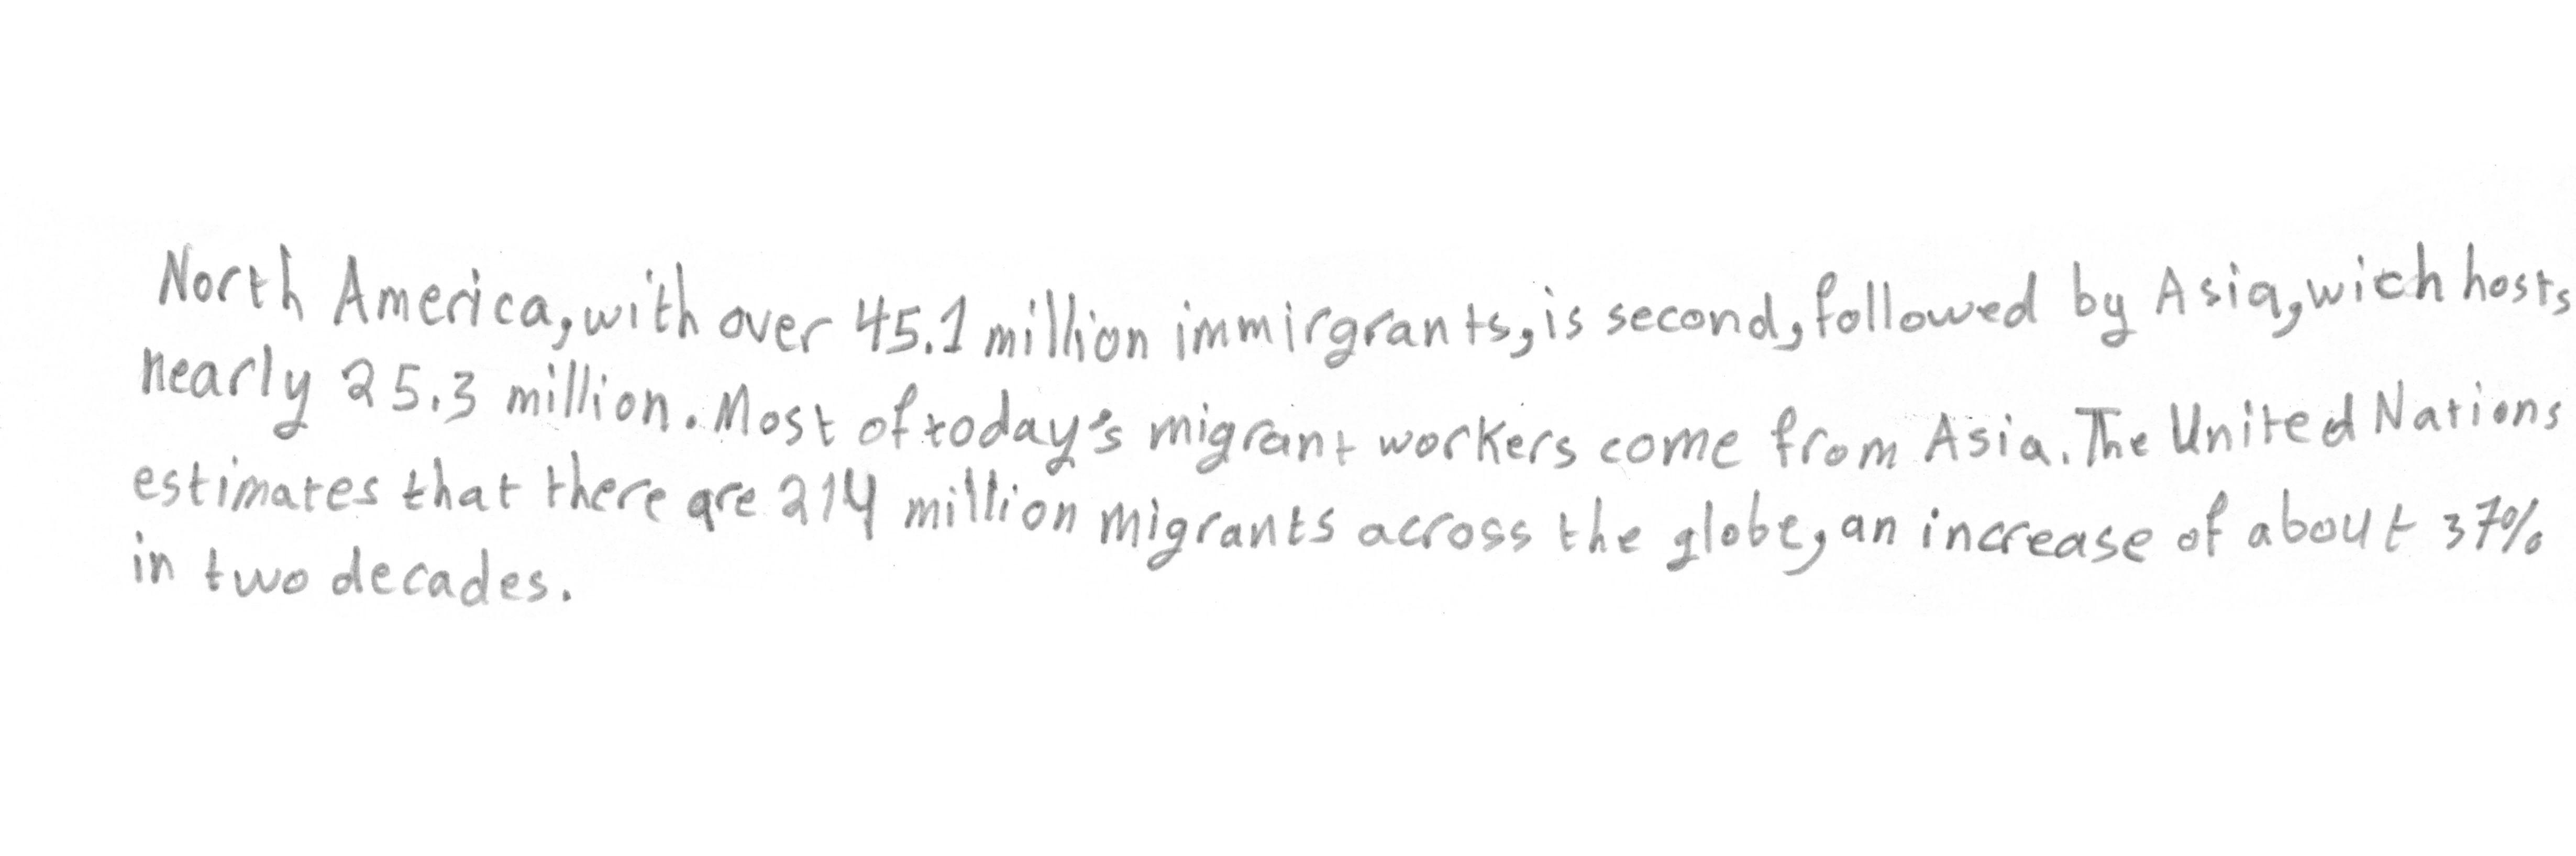 North America, with over 45.1 million immirgrants, is second, followed by Asia, wich hosts
nearly 25.3 million. Most of today's migrant workers come from Asia. The United Nations
estimates that there are 214 million migrants across the globe, an increase of about 37%
in two decades.